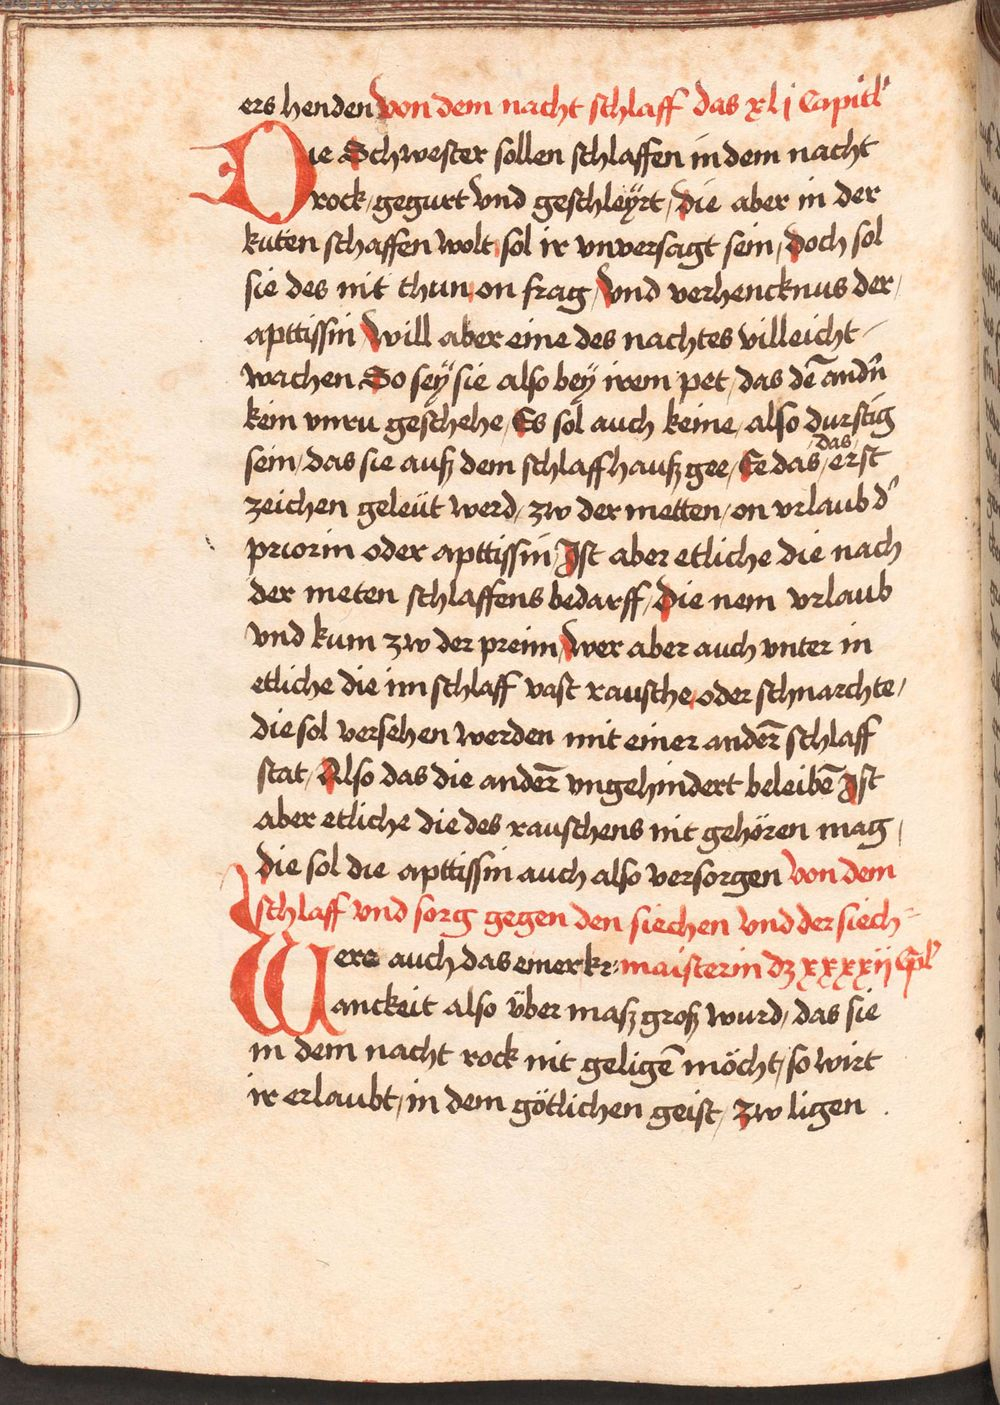 ers henden Von dem nacht schlaff das xlj Capitl'
Die Schwester sollen schlaffen in dem nacht
rock / gegurt Vnd geschleÿrt / die aber in der
kuten schaffen wolt sol ir vnversagt sein / doch sol
sie des nit thun on frag / Vnd verhencknus der /
apttissin Will aber eine des nachtes villeicht
wachen So seÿ sie also beÿ irem pet / das dē andn̄
kein vnru geschehe / Es sol auch keine / also durstig
sein / das sie auß dem schlaffhauß gee / Ee das / das / erst
zeichen geleüt werd / zw der metten / on vrlaub d'
priorin oder apttissin Ist aber etliche die nach
der meten schlaffens bedarff / die nem vrlaub
Vnd kum zw der preim / Wer aber auch vnter in
etliche die im schlaff vast rausche oder schnarchte /
die sol versehen werden mit einer ander̄ schlaff
stat / Also das die ander̄ vngehindert beleibē Ist
aber etliche die des rauschens nit gehören mag /
die sol die apttissin auch also versorgen Von dem
schlaff vnd sorg gegen den siechen vnd der siech=
Were auch das einer kr= maisterin dz xxxxij Cpl'
anckeit also über maß groß wurd / das sie
in dem nacht rock nit geligē möcht / so wirt
ir erlaubt / in dem götlichen geist / zw ligen .